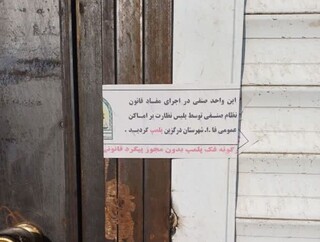 این واحد صنفی در اجرای مفاد قانون
نظام صنفی توسط پلیس نظارت بر اماکن
عمومی فا.ا. شهرستان درگزین پلمپ گردید.
گونه فک پلمپ بدون مجوز پیگرد قانونی